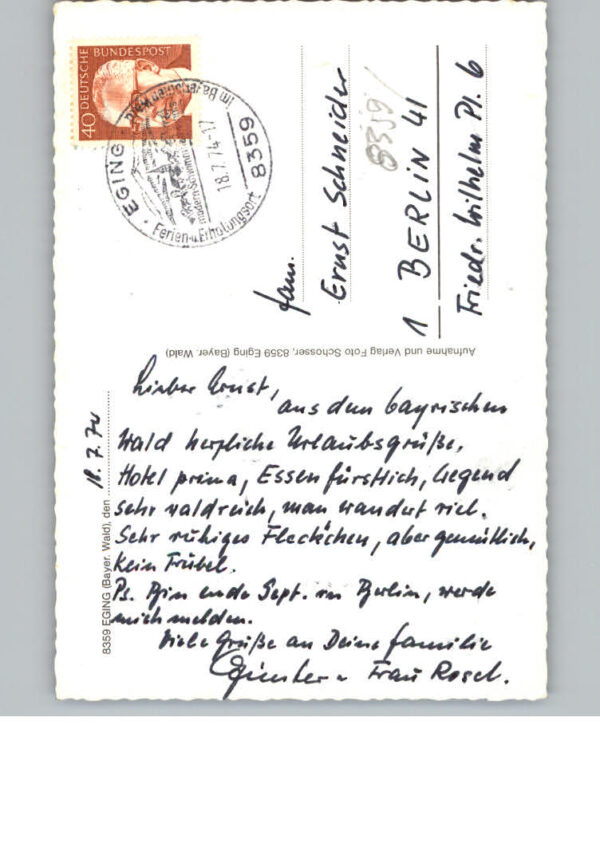 DEUTSCHE BUNDESPOST
40
EGING
8359
18.7.74-17
Im Bayerischen Wald
Ferien-u.Erholungsort
8359
Fam.
Ernst Schneider
1 BERLIN 41
Friedr. Wilhelm Pl. 6
Aufnahme und Verlag Foto Schosser, 8359 Eging (Bayer. Wald)
8359 EGING (Bayer. Wald), den 18.7.74
Lieber Ernst,
aus dem bayrischen
Wald herzliche Urlaubsgrüße,
Hotel prima, Essen fürstlich, Gegend
sehr waldreich, man wandert viel.
Sehr ruhiges Fleckchen, aber gemütlich,
kein Trubel.
Ps. Bin ende Sept. in Berlin, werde
mich melden.
Viele Grüße an Deine Familie
Günter u Frau Rosel.